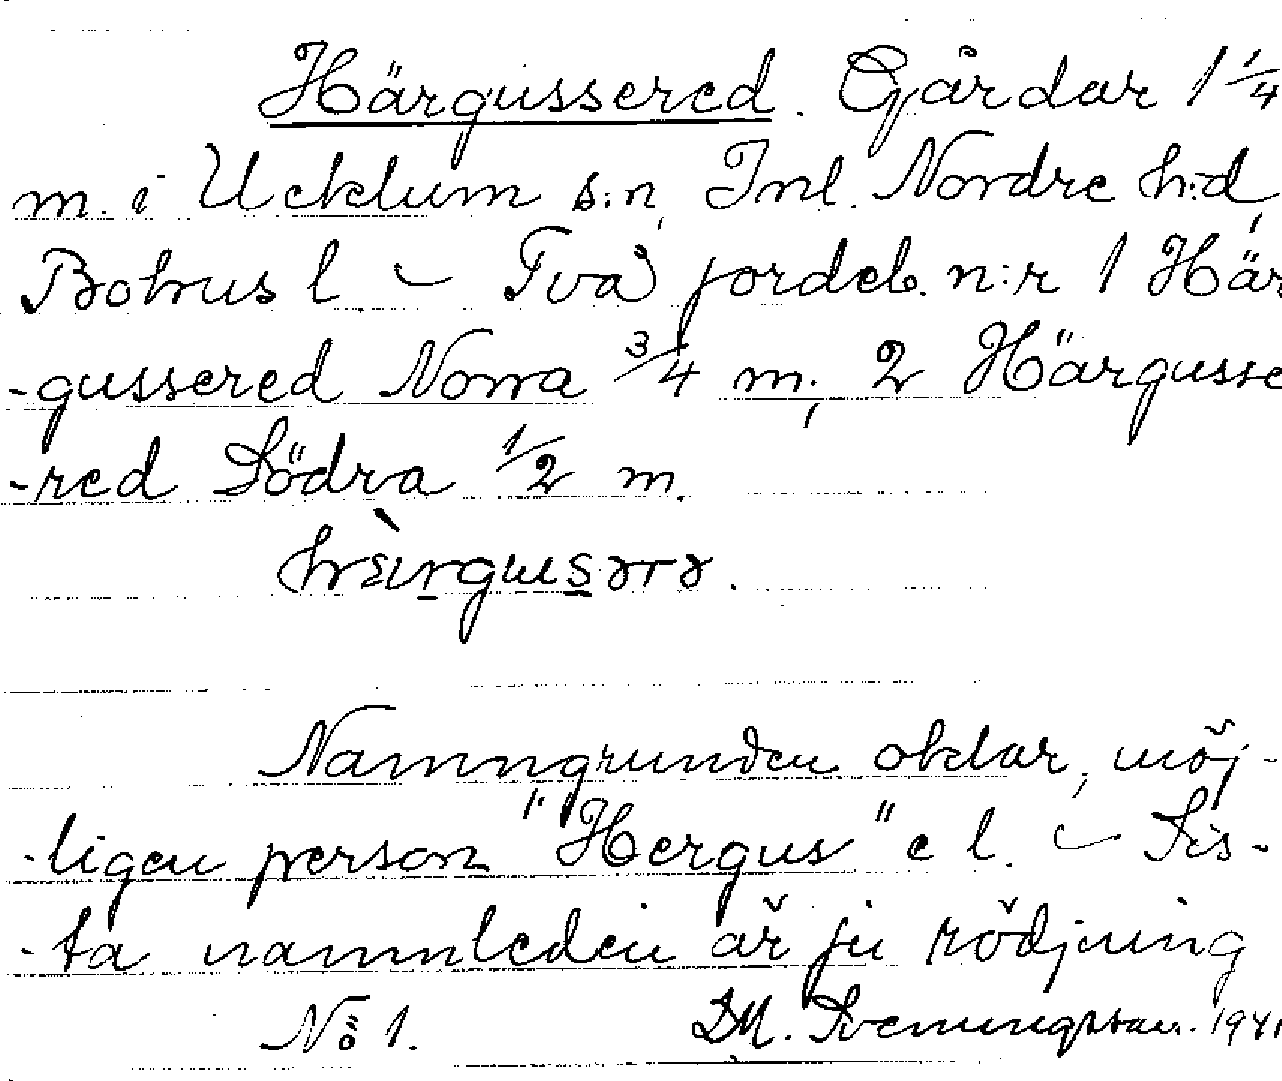 Härgussered. Gårdar 1 1/4
m. i Ucklum s:n, Inl. Nordre h:d,
Bohus l – Två jordeb. n:r 1 Här
-gussered Norra 3/4 m; 2 Härgusse
-red Södra 1/2 m.
Namngrunden oklar, möj-
-ligen person "Hergus" e l. – Sis-
-ta namnleden är ju rödjning
No 1. D.M. Sveningsson. 1941